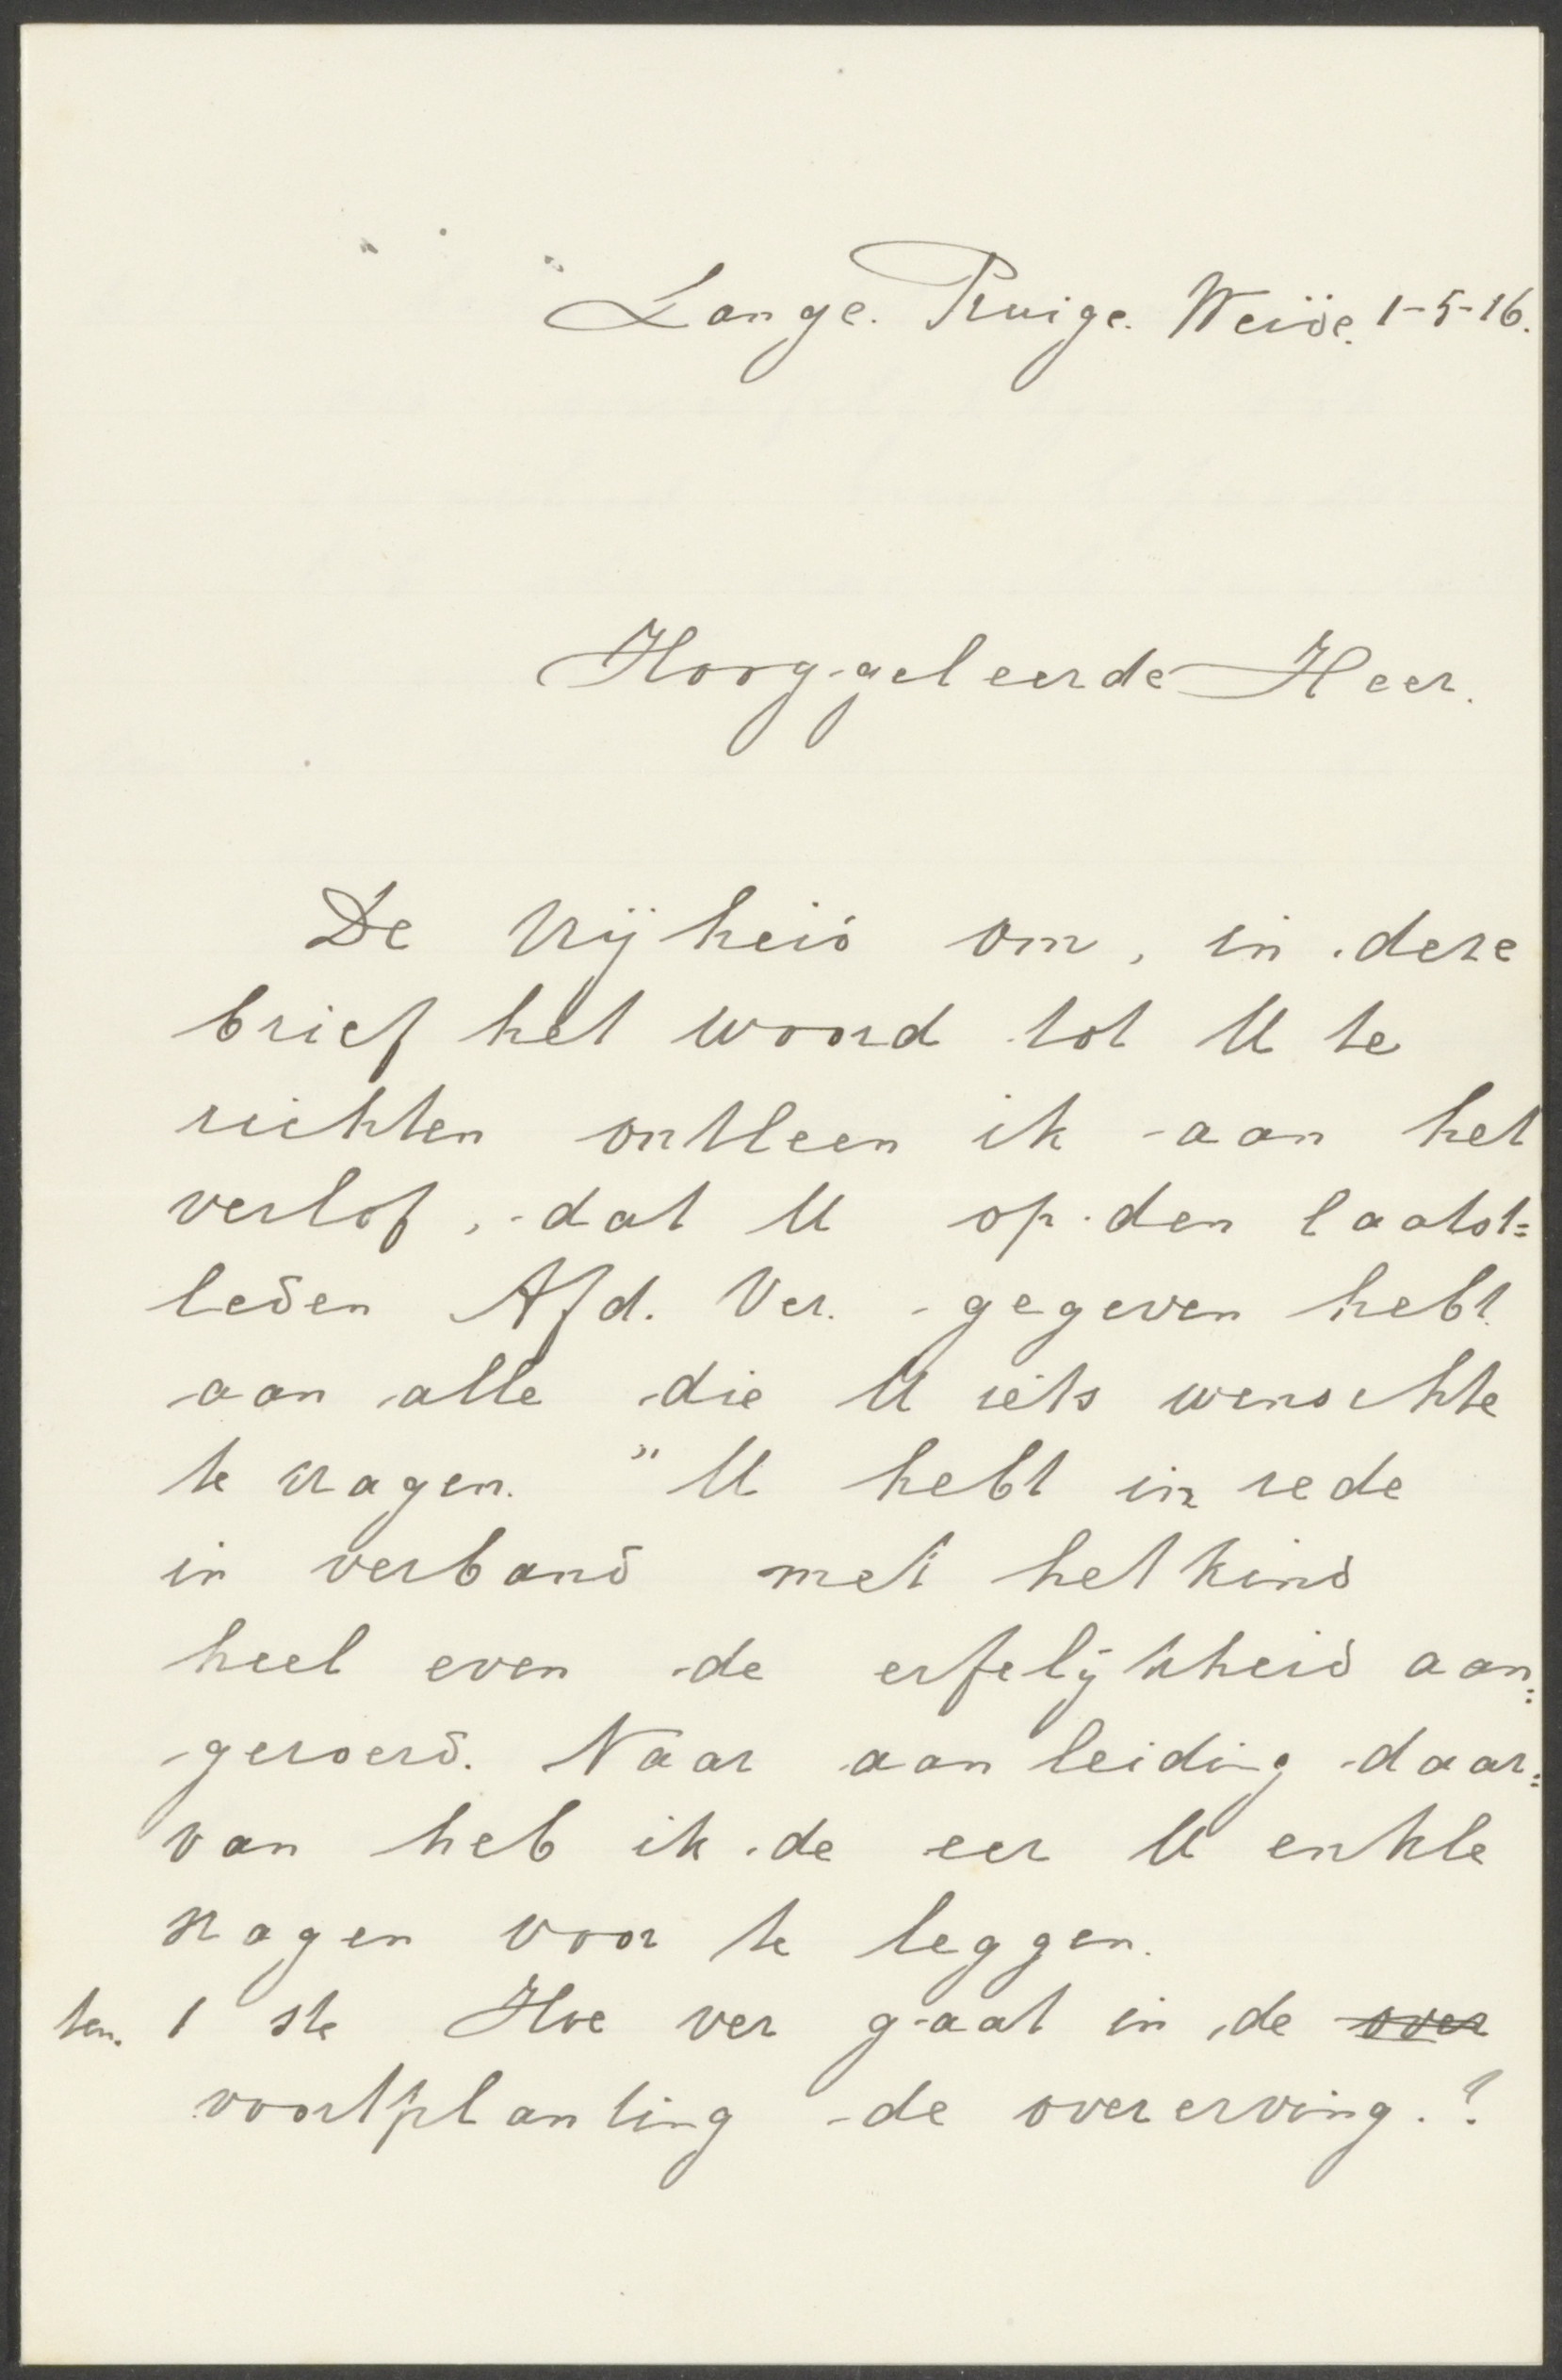 Lange. Ruige. Weide. 1-5-16.
Hoog-geleerde Heer.
De vrijheid om, in deze
brief het woord tot U te
richten ontleen ik aan het
verlof, dat U op den laatst=
leden Afd. Ver. gegeven hebt
aan alle die U iets wenschte
te vragen. " U hebt in rede
in verband met het kind
heel even de erfelijkheid aan=
geroerd. Naar aanleiding daar=
van heb ik de eer U enkle
vragen voor te leggen.
ten. 1 ste Hoe ver gaat in de over
voortplanting de overerving.?